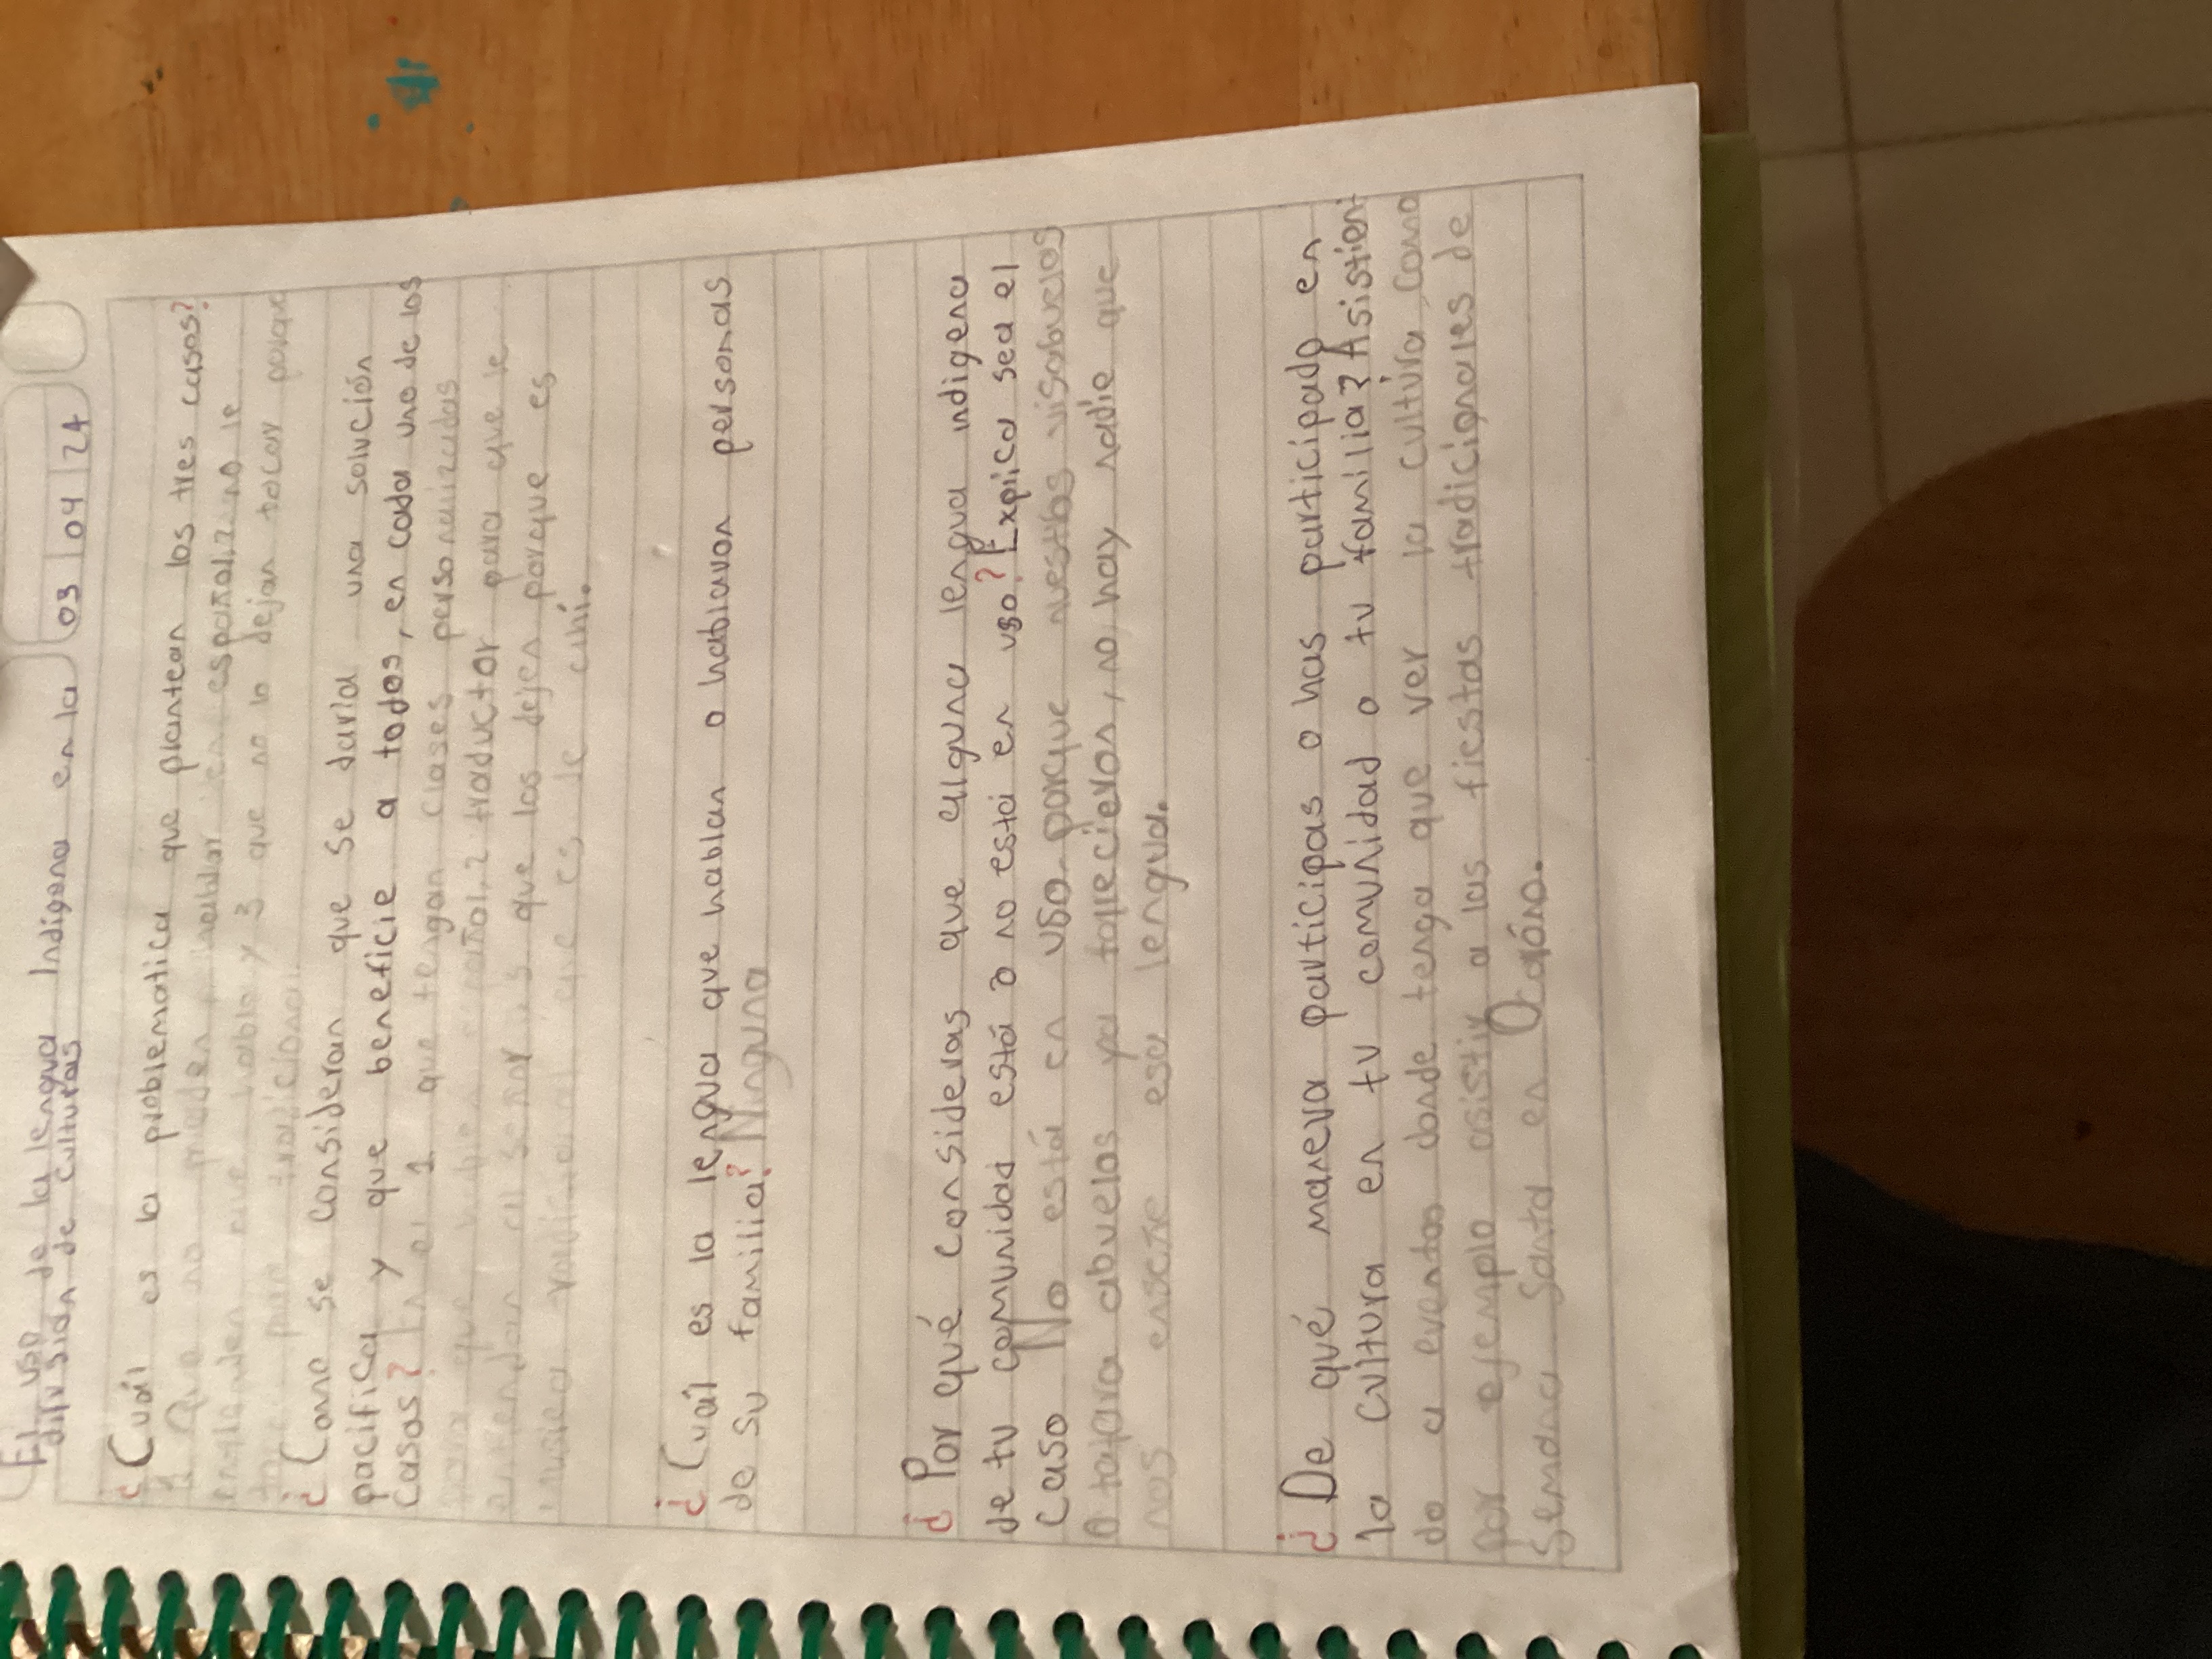 El uso de la lengua Indigena en la 03 04 24
difusión de culturas
¿Cuál es la problematica que plantean los tres casos?
1 Que no pueden hablar en español, 2 no le
entienden que habla y 3 que no lo dejan tocar porque
tradicional.
¿Como se consideran que se daria una solución
pacifica y que beneficie a todos, en cada uno de los
casos? En el 1 que tengan clases personalizadas
para que hablen español, 2 traductor para que le
entiendan al señor y 3 que los dejen porque es
musica tradicional que es de ahí.
¿Cuál es la lengua que hablan o hablaron personas
de su familia? Ninguna
¿Por qué consideras que alguna lengua indigena
de tu comunidad está o no está en uso? Explica sea el
caso No está en uso porque nuestros visabuelos
tatara abuelos ya fallecieron, no hay nadie que
nos enseñe esa lengua.
¿De qué manera participas o has participado en
la cultura en tu comunidad o tu familia? Asistien-
do a eventos donde tenga que ver la cultura, como
por ejemplo asistir a las fiestas tradicionales de
Semana Santa en